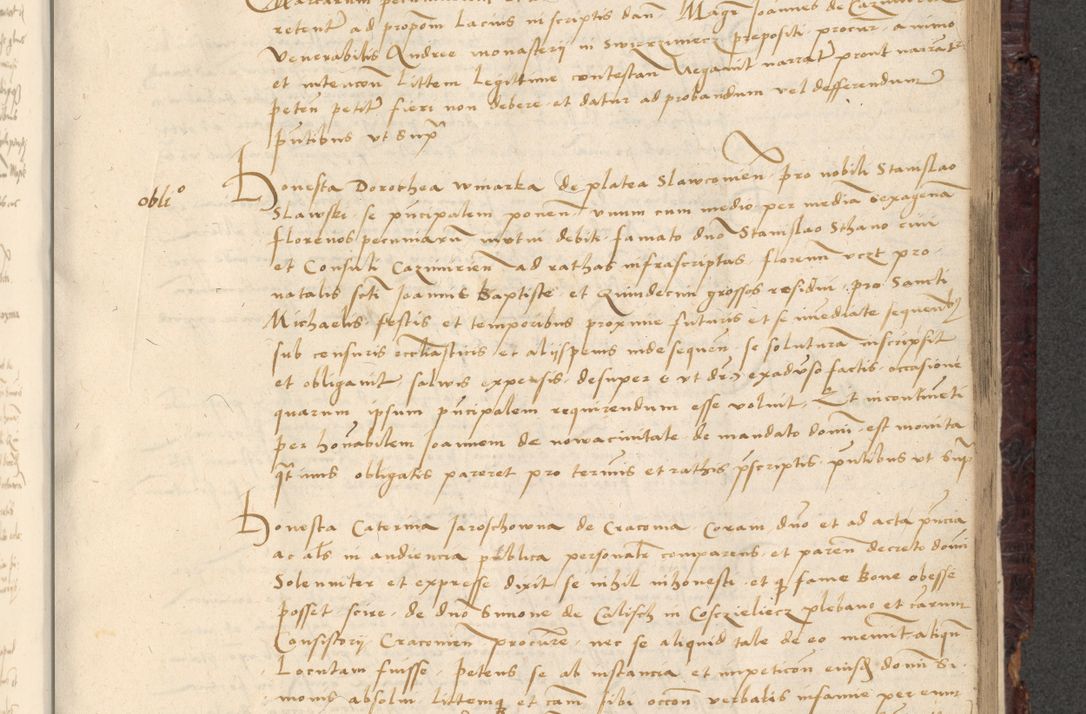 retent ad propom lacius in scriptis dan Magr Joannes de Cazimiria
venerabilis Andree monasterij in Swierziniecz prepositi procur animo
et intencon littem legittime contestan Negavit narrat pront narrant
peten petitr fieri non debere et datur ad probandum vel defferendum
pntibus ut supra
obli⁰
Honesta Dorothea winarka de platea Slawcomen pro nobili Stanislao
Slawski se pncipalem ponen unum cum medio per mediā sexagenā
florenos pecuniarū mutui debiti famato dno Stanislao Sthano civi
et Consuli Cazimirien ad rathas infrascriptas florenū vczt pro
natalis scti Joannis Baptiste et Quindecim grossos residui pro Sancti
Michaelis festis et temporibus proxime futuris et se imediate sequentibus
sub censuris ecclasticis et alijs penis inde sequen se soluturā inscripsit
et obligavit salvis expensis desuper ut exadverso factis occasione
quarum ipsum pncipalem requirendum esse voluit Et incontinēti
per honabilem Joannem de nowacivitate de mandato domi est monita
qtinus obligatis pareret pro termis et rathis pscriptis pntibus ut sup
Honesta Caterina Jaroschowna de Cracovia Coram dno et ad acta pncia
ac als in audiencia publica personalr comparens et paren decreto domi
Solenniter et expresse dixit se nihil inhonesti et q fame bone obesse
posset scire de dno Simone de Calisch in Cosczieliecz plebano et carum
Consistorij Cracovien procure nec se aliquid tale de eo
Locutam fuisse petens se ab instancia et impeticon eiusd domi Si
monis absolui littemq et cām sibi occon verbalis infamie per eum